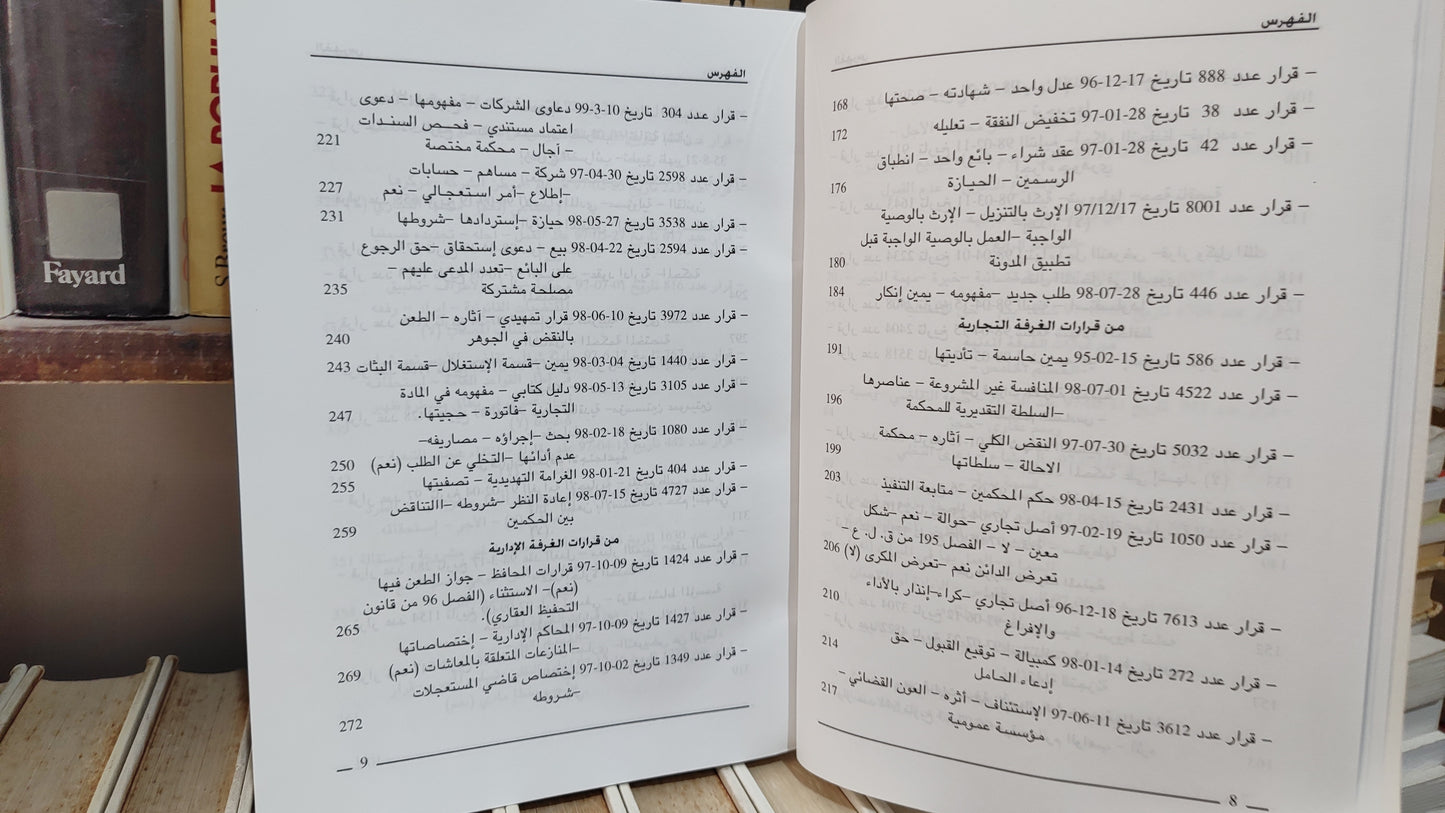 الفهرس
– قرار عدد 888 تاريخ 17-12-96 عدل واحد – شهادته – صحتها 168
– قرار عدد 38 تاريخ 28-01-97 تخفيض النفقة – تعليله 172
– قرار عدد 42 تاريخ 28-01-97 عقد شراء – بائع واحد – انطباق
الرسمين – الحيازة 176
– قرار عدد 8001 تاريخ 97/12/17 الإرث بالتنزيل – الإرث بالوصية
الواجبة – العمل بالوصية الواجبة قبل
تطبيق المدونة 180
– قرار عدد 446 تاريخ 28-07-98 طلب جديد –مفهومه – يمين إنكار 184
من قرارات الغرفة التجارية
– قرار عدد 586 تاريخ 15-02-95 يمين حاسمة – تأديتها 191
– قرار عدد 4522 تاريخ 01-07-98 المنافسة غير المشروعة – عناصرها
–السلطة التقديرية للمحكمة 196
– قرار عدد 5032 تاريخ 30-07-97 النقض الكلي – آثاره – محكمة
الاحالة – سلطاتها 199
– قرار عدد 2431 تاريخ 15-04-98 حكم المحكمين – متابعة التنفيذ 203
– قرار عدد 1050 تاريخ 19-02-97 أصل تجاري –حوالة – نعم –شكل
معين – لا – الفصل 195 من ق. ل. ع –
تعرض الدائن نعم –تعرض المكرى (لا) 206
– قرار عدد 7613 تاريخ 18-12-96 أصل تجاري –كراء–إنذار بالأداء
والإفراغ 210
– قرار عدد 272 تاريخ 14-01-98 كمبيالة – توقيع القبول – حق
إدعاء الحامل 214
– قرار عدد 3612 تاريخ 11-06-97 الإستئناف – أثره – العون القضائي –
مؤسسة عمومية 217
8
الفهرس
– قرار عدد 304 تاريخ 10-3-99 دعاوى الشركات – مفهومها – دعوى
اعتماد مستندي – فحص السندات
– آجال – محكمة مختصة 221
– قرار عدد 2598 تاريخ 30-04-97 شركة – مساهم – حسابات
–إطلاع – أمر استعجالي – نعم 227
– قرار عدد 3538 تاريخ 27-05-98 حيازة –إستردادها –شروطها 231
– قرار عدد 2594 تاريخ 22-04-98 بيع – دعوى إستحقاق –حق الرجوع
على البائع –تعدد المدعى عليهم –
مصلحة مشتركة 235
– قرار عدد 3972 تاريخ 10-06-98 قرار تمهيدي – آثاره – الطعن
بالنقض في الجوهر 240
– قرار عدد 1440 تاريخ 04-03-98 يمين –قسمة الإستغلال –قسمة البثات 243
– قرار عدد 3105 تاريخ 13-05-98 دليل كتابي – مفهومه في المادة
التجارية –فاتورة – حجيتها. 247
– قرار عدد 1080 تاريخ 18-02-98 بحث –إجراؤه – مصاريفه–
عدم أدائها –التخلي عن الطلب (نعم) 250
– قرار عدد 404 تاريخ 21-01-98 الغرامة التهديدية – تصفيتها 255
– قرار عدد 4727 تاريخ 15-07-98 إعادة النظر –شروطه –االتناقض
بين الحكمين 259
من قرارات الغرفة الإدارية
– قرار عدد 1424 تاريخ 09-10-97 قرارات المحافظ – جواز الطعن فيها
(نعم)– الاستثناء (الفصل 96 من قانون
التحفيظ العقاري). 265
– قرار عدد 1427 تاريخ 09-10-97 المحاكم الإدارية – إختصاصاتها
–المنازعات المتعلقة بالمعاشات (نعم) 269
– قرار عدد 1349 تاريخ 02-10-97 إختصاص قاضي المستعجلات
–شروطه 272
9
Fayard